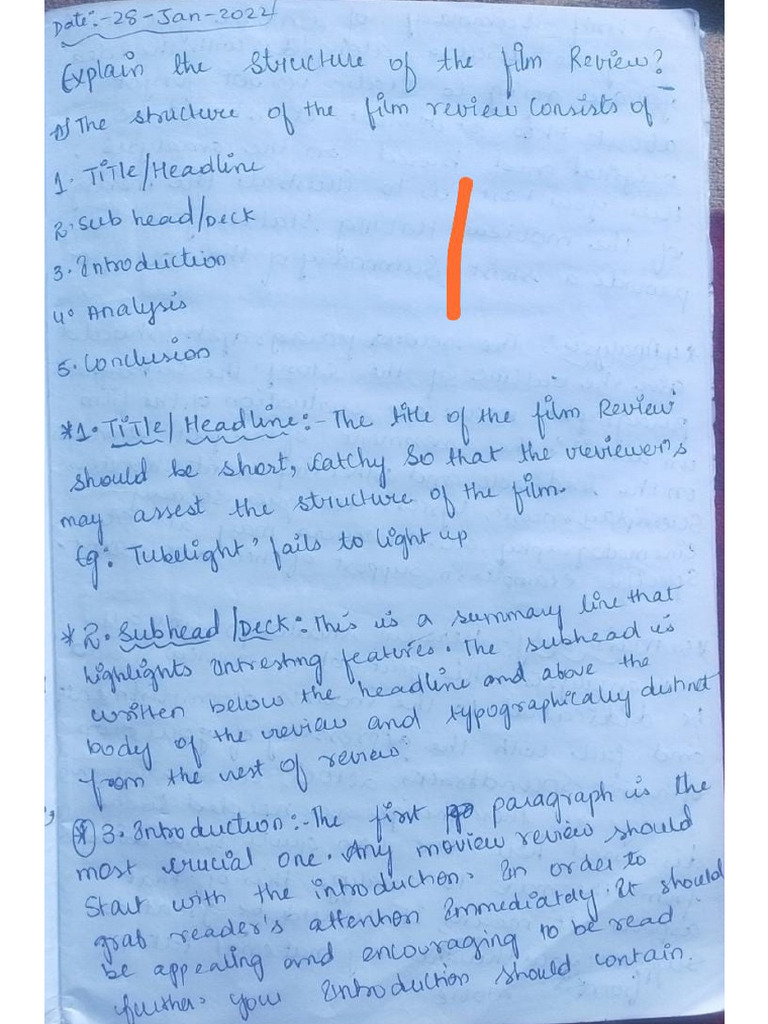 Date:-28-Jan-2022
Explain the structure of the film Review?
A) The structure of the film review consists of
1. Title/Headline
2. Sub head/Deck
3. Introduction
4. Analysis
5. Conclusion
*1. Title/Headline:- The title of the film Review
should be short, catchy so that the reviewer's
may assest the structure of the film.
Eg: Tubelight' fails to light up
*2. Subhead/Deck: This is a summary line that
highlights intresting features. The subhead is
written below the headline and above the
body of the review and typographically distinct
from the rest of review.
* 3. Introduction:- The first paragraph is the
most crucial one. Any moview review should
Start with the introduction. In order to
grab reader's attention immediately. It should
be appealing and encouraging to be read
further. Your Introduction should contain.